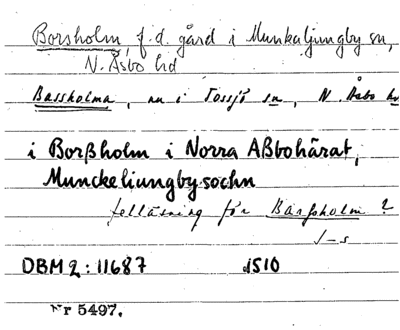 Borsholm, f.d. gård i Munkaljungby sn,
N. Åsbo hd
Bassholma, nu i Tossjö sn, N. Åsbo hd
i Borßholm i Norra Aßbohärat,
Munckeliungby sochn
felläsning för Barssholm ?
J-s
DBM 2: 11687 1510
Nr 5497.